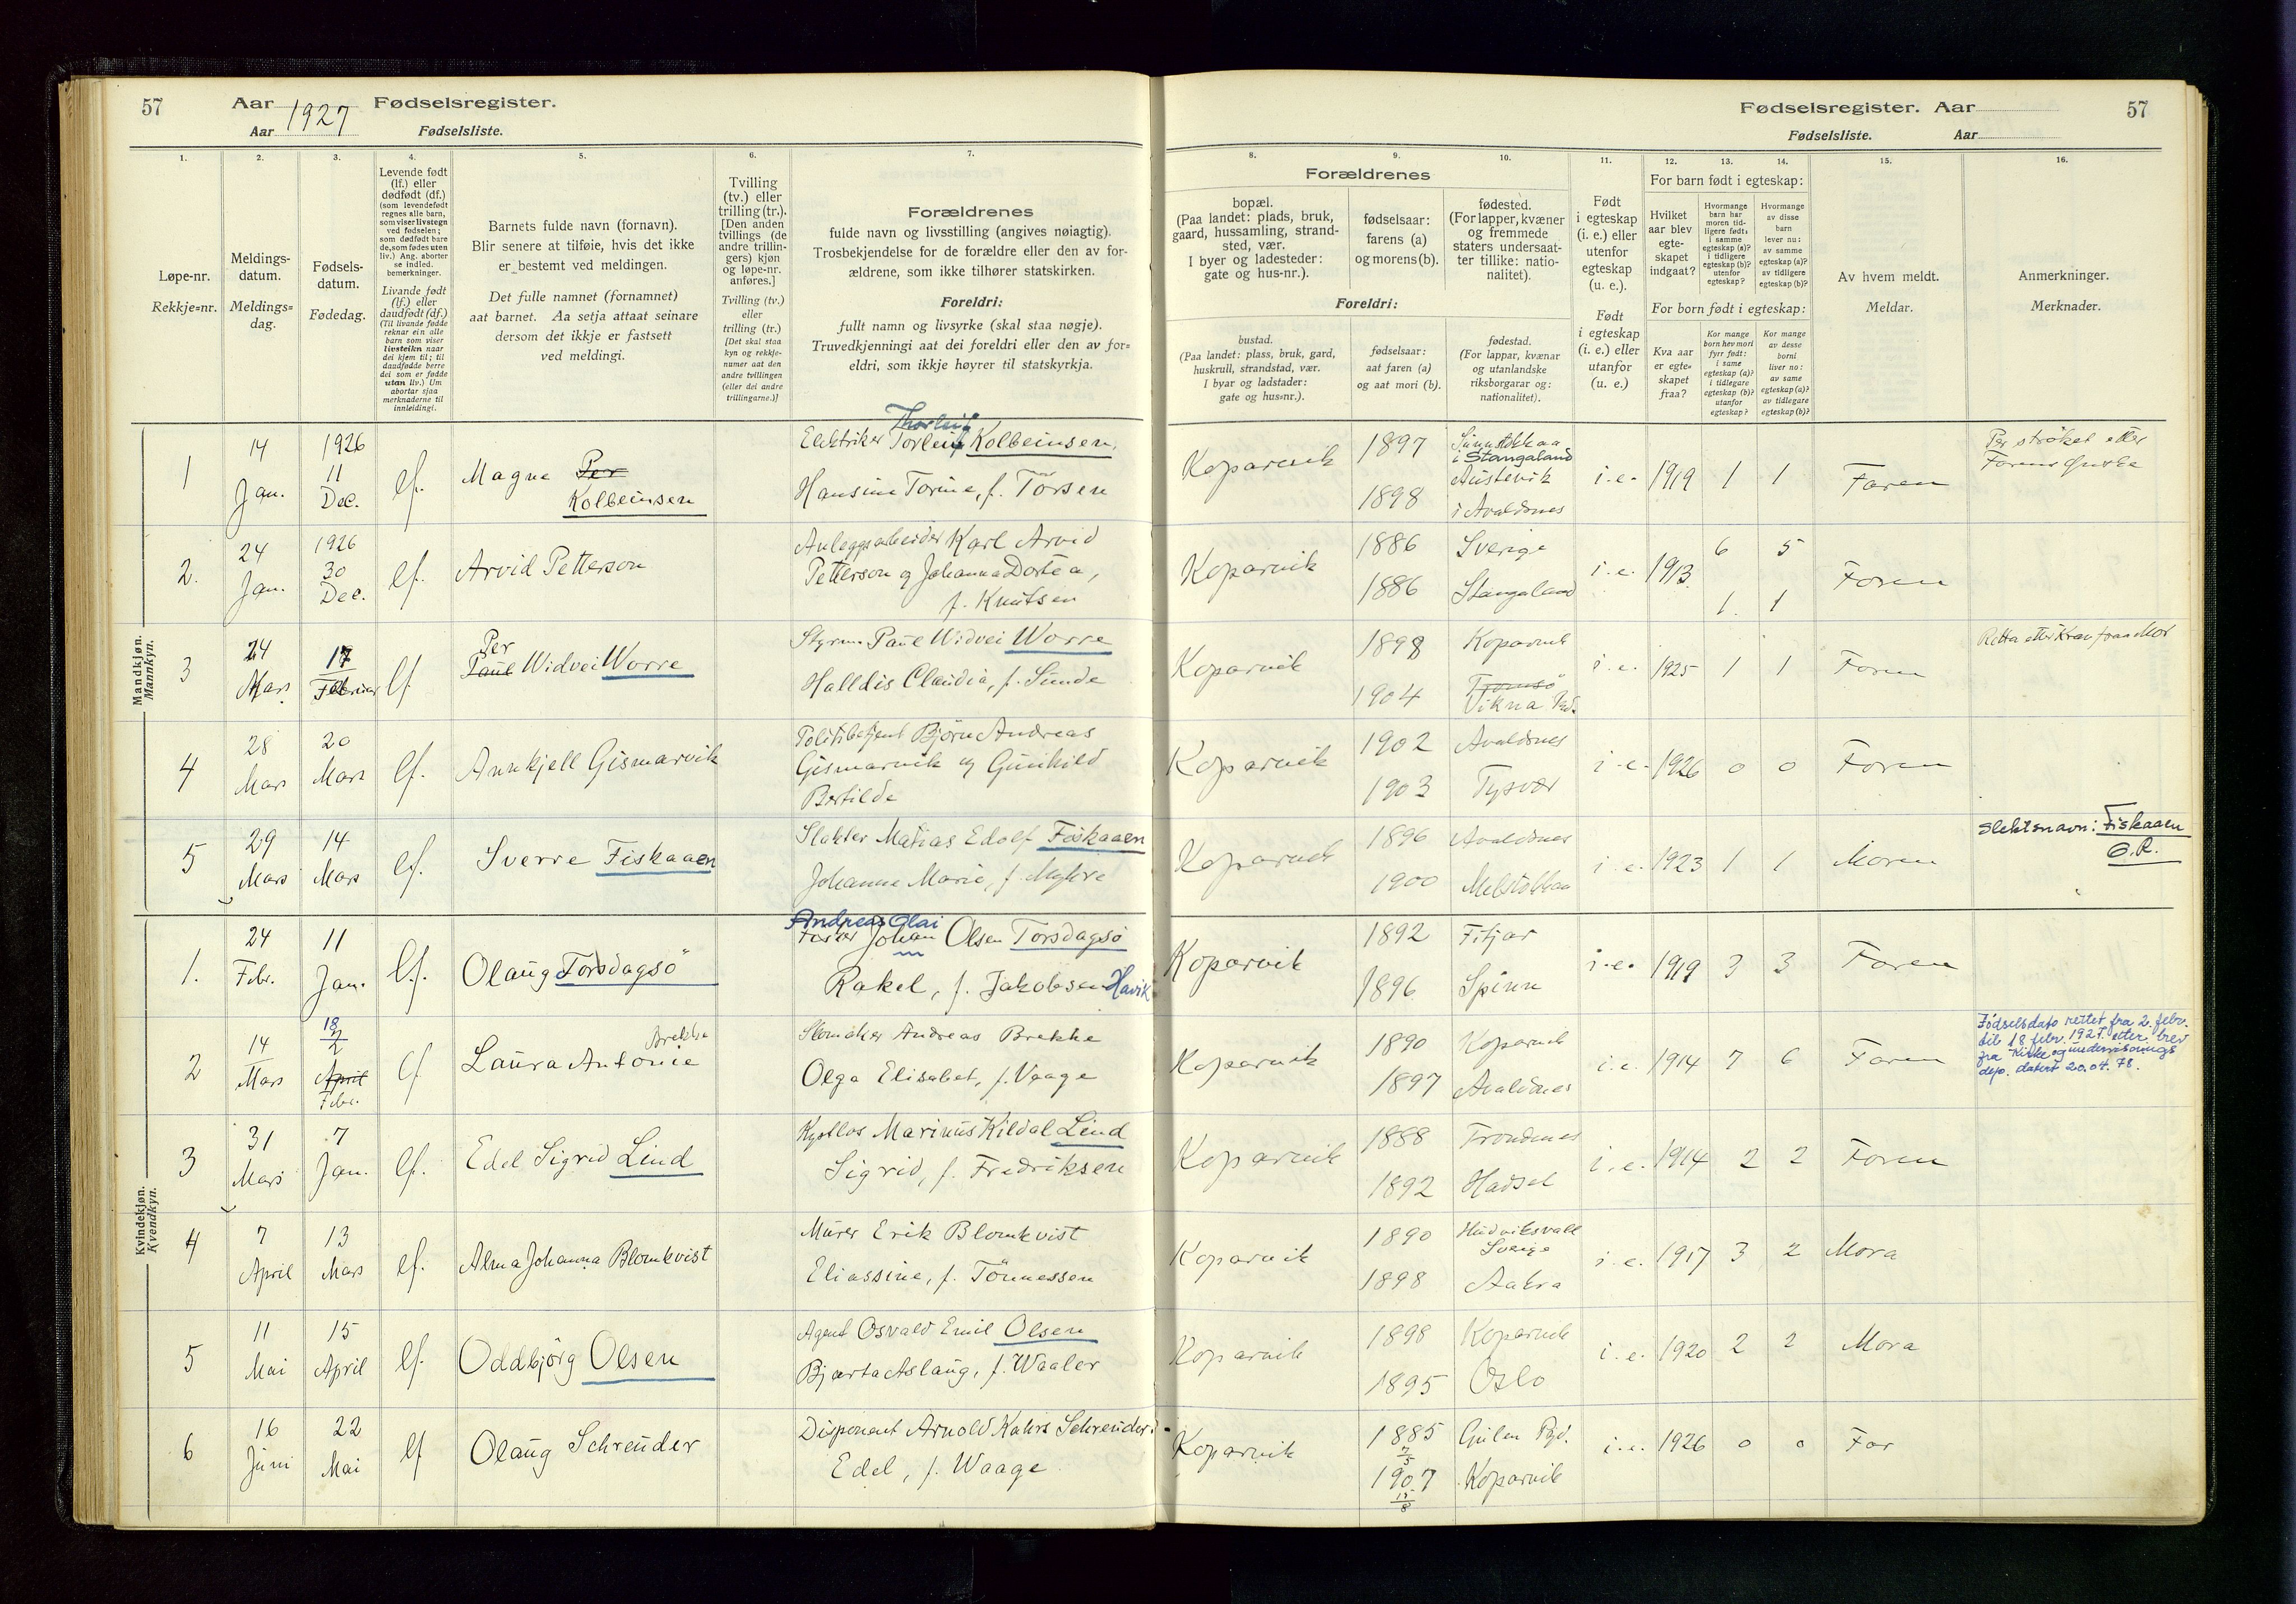 57 Aar 1927 Fødselsregister.
Aar Fødselsliste.
1. 2. 3. 4. 5. 6. 7.
Løpe-nr.
Rekkje=nr.
Meldings-
datum.
Meldings=
dag.
Fødsels-
datum.
Fødedag.
Levende født
(lf.) eller
dødfødt (df.)
(som levendefødt
regnes alle barn,
som viser livstegn
ved fødselen;
som dødfødt bare
de, som fødes uten
liv.) Ang. aborter
se indled.
bemerkninger.
Livande født
(lf.) eller
daudfødt (df.)
(Til livande fødde
reknar ein alle
barn som viser
livsteikn naar
dei kjem til; til
daudfødde berre
dei som er fødde
utan liv.) Um
abortar sjaa
merknaderne til
innleidingi.
Barnets fulde navn (fornavn).
Blir senere at tilføie, hvis det ikke
er bestemt ved meldingen.
Det fulle namnet (fornamnet)
aat barnet. Aa setja attaat seinare
dersom det ikkje er fastsett
ved meldingi.
Tvilling
(tv.) eller
trilling (tr.).
[Den anden
tvillings (de
andre trillin-
gers) kjøn
og løpe-nr.
anføres.]
Tvilling (tv.)
eller
trilling (tr.)
[Det skal staa
kyn og rekkje-
numer aat den
andre tvillingen
(eller dei andre
trillingarne.)]
Forældrenes
fulde navn og livsstilling (angives nøiagtig).
Trosbekjendelse for de forældre eller den av for-
ældrene, som ikke tilhører statskirken.
Foreldri:
fullt namn og livsyrke (skal staa nøgje).
Truvedkjenningi aat dei foreldri eller den av for=
eldri, som ikkje høyrer til statskyrkja.
Mandkjøn.
Mannkyn.
1
14
Jan.
1926
11
Dec.
lf.
Magne Per
Kolbeinsen
Thorleif
Elektriker Torleif Kolbeinsen,
Hansine Torine, f. Torsen
2.
24
Jan.
1926
30
Dec.
lf.
Arvid Petterson
Anleggsarbeider Karl Arvid
Petterson og Johanna Dortea,
f. Knutsen
3
24
Mars
17
Februar
lf
Per
Paul Widvei Worre
Styrm. Paul Widvei Worre
Halldis Claudia, f. Sunde
4
28
Mars
20
Mars
lf.
Annkjell Gismarvik
Politibetjent Bjørn Andreas
Gismarvik og Gunhild
Bertilde
5
29
Mars
14
Mars
lf.
Sverre Fiskaaen
Slakter Matias Edolf Fiskaaen
Johanne Marie, f. Myhre
Kvindekjøn.
Kvendkyn.
1.
24
Febr.
11
Jan.
lf.
Olaug Torsdagsö
Andreas Olai
Fisker Johan Olsen Torsdagsö
Rakel, f. Jakobsen Havik
2
14
Mars
18
2
April
Febr.
lf
Brekke
Laura Antonie
Skomaker Andreas Brekke
Olga Elisabet, f. Vaage
3
31
Mars
7
Jan.
lf.
Edel Sigrid Lind
Kystlos Marinus Kildal Lind
Sigrid, f. Fredriksen
4
7
April
13
Mars
lf.
Alma Johanna Blomkvist
Murer Erik Blomkvist
Eliassine, f. Tönnessen
5
11
Mai
15
April
lf.
Oddbjörg Olsen
Agent Osvald Emil Olsen
Bjarta Aslaug, f. Waaler
6
16
Juni
22
Mai
lf
Olaug Schreuder
Disponent Arnold Kahrs Schreuder
Edel, f. Waage
Fødselsregister. Aar 57
Fødselsliste. Aar
8. 9. 10. 11. 12. 13. 14. 15. 16.
Forældrenes
bopæl.
(Paa landet: plads, bruk,
gaard, hussamling, strand-
sted, vær.
I byer og ladesteder:
gate og hus-nr.).
fødselsaar:
farens (a)
og morens (b).
fødested.
(For lapper, kvæner
og fremmede
staters undersaat-
ter tillike: natio-
nalitet).
Foreldri:
bustad.
(Paa landet: plass, bruk, gard,
huskrull, strandstad, vær.
I byar og ladstader:
gate og hus=nr.).
fødselsaar:
aat faren (a)
og aat mori (b).
fødestad.
(For lappar, kvænar
og utanlandske
riksborgarar og:
nationalitet).
Født
i egteskap
(i. e.) eller
utenfor
egteskap
(u. e.).
Født
i egteskap
(i. e.) eller
utanfor
(u. e.)
For barn født i egteskap:
Hvilket
aar blev
egte-
skapet
indgaat?
Hvormange
barn har
moren tid-
ligere født:
i samme
egteskap (a)?
i tidligere
egteskap (b)?
utenfor
egteskap?
Hvormange
av disse
barn
lever nu:
av samme
egteskap (a)?
av tidligere
egteskap (b)?
For born født i egteskap:
Kva aar
er egte=
skapet
fraa?
Kor mange
born hev mori
fyrr født:
i same
egteskap (a)?
i tidlegare
egteskap (b)?
utanfor
egteskap?
Kor mange
av desse
borni
liver no:
av same
egteskap (a)?
av tidlegare
egteskap (b)?
Av hvem meldt.
Meldar.
Anmerkninger.
Merknader.
Kopervik
1897
1898
i Stangaland
Austevik
i Avaldsnes
i.e. 1919 1 1 Faren
Per strøket etter
Farens Ønske
Koparvik
1886
1886
Sverige
Stangaland
i.e. 1913
6 5
1. 1
Faren
Koparvik
1898
1904
Koparvik
Tromsö
Vikna
i.e. 1925 1 1 Faren
Retta etter Krav fraa Mor
Koparvik
1902
1903
Avaldsnes
Tysvær
i.e. 1926 0 0 Faren
Koparvik
1896
1900
Avaldsnes
i.e. 1923 1 1 Moren
Slektsnavn: Fiskaaen
O.R.
Koparvik
1892
1896
Fitjar
Spinn
i.e. 1919 3 3 Faren
Koparvik
1890
1897
Koparvik
Avaldsnes
i.e. 1914 7 6 Faren
Fødselsdato rettet fra 2. febr.
til 18 febr. 1927. etter brev
fra Kirke og undervisnings
dep. datert 20.04.78.
Koparvik
1888
1892
Trondenes
Hadsel
i.e. 1914 2 2 Faren
Koparvik
1890
1898
Hudviksvall
Sverige
Aakra
i.e. 1917 3 2 Mora
Koparvik
1898
1895
Koparvik
Oslo
i.e. 1920 2 2 Mora
Koparvik
1885
7
5
1907
15
8
Gulen
Koparvik
i.e. 1926 0 0 Far